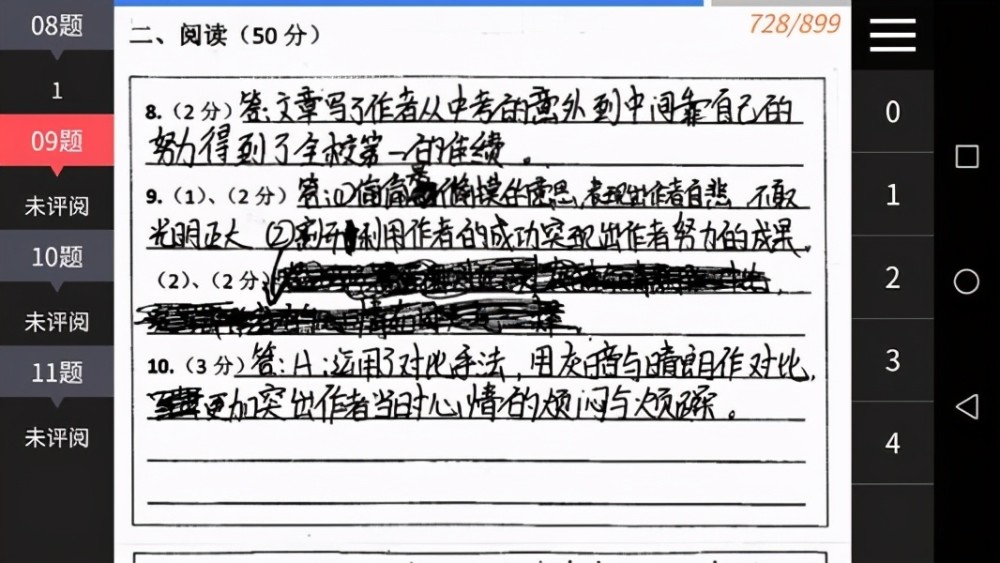 08题
1
09题
未评阅
10题
未评阅
11题
未评阅
728/899
二、阅读（50 分）
8.（2 分）答：文章写了作者从中考的意外到中间靠自己的
努力得到了全校第一的佳绩。
9.（1）、（2 分）答：①偷偷 的意思，表现出作者自悲，不敢
光明正大 ② 利用作者的成功突现出作者努力的成果。
（2）、（2 分）
10.（3 分）答：A：运用了对比手法，用灰暗与晴朗作对比，
更加突出作者当时心情的烦闷与烦躁。
0
1
2
3
4